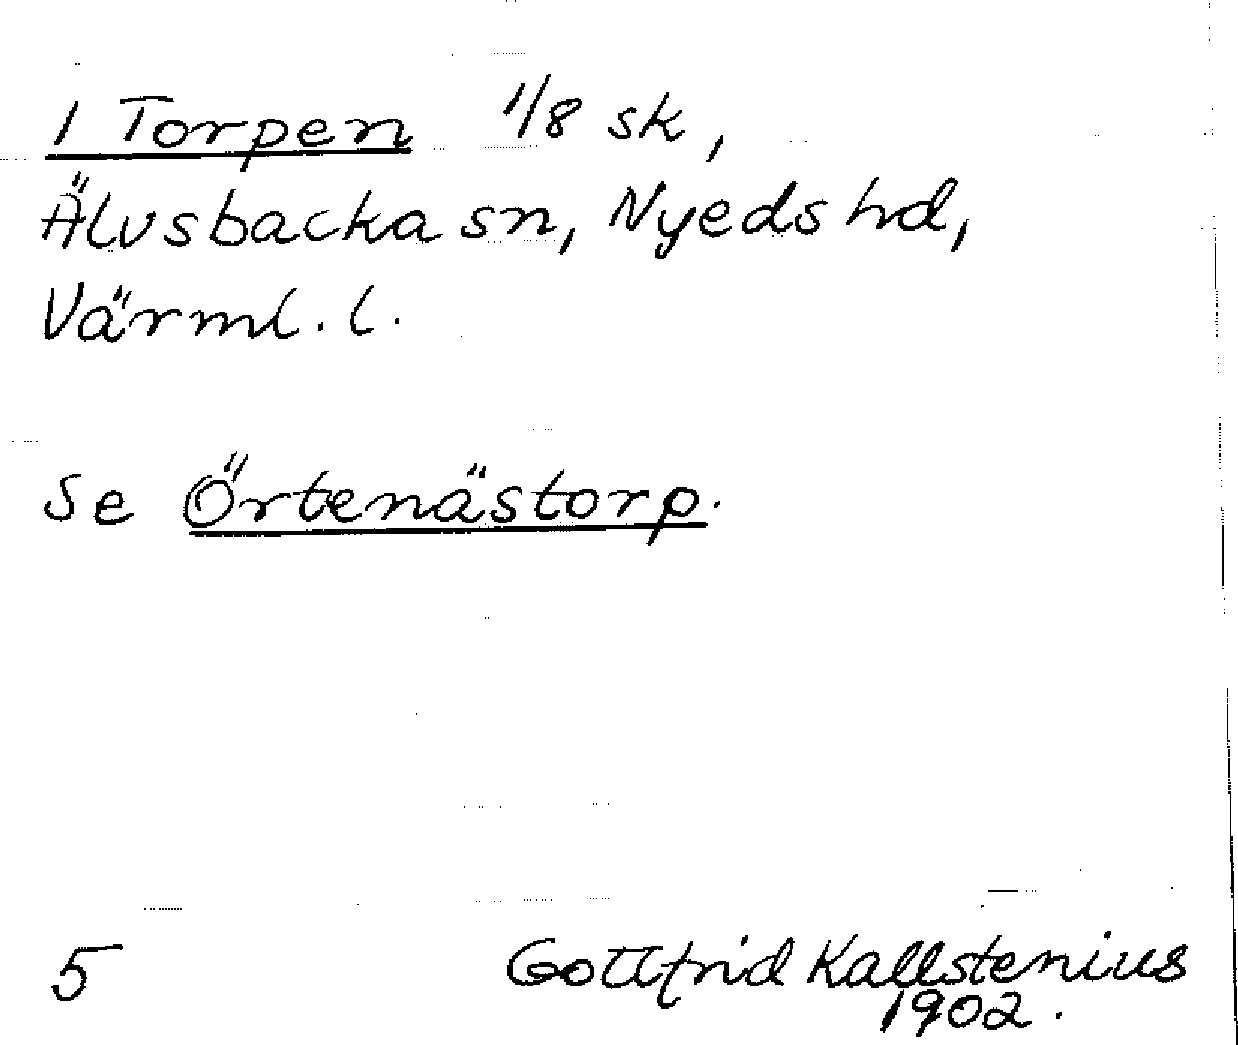 I Torpen 1/8 sk,
Älvsbacka sn, Nyeds hd,
Värml. l.
Se Örtenästorp.
5
Gottfrid Kallstenius
1902.